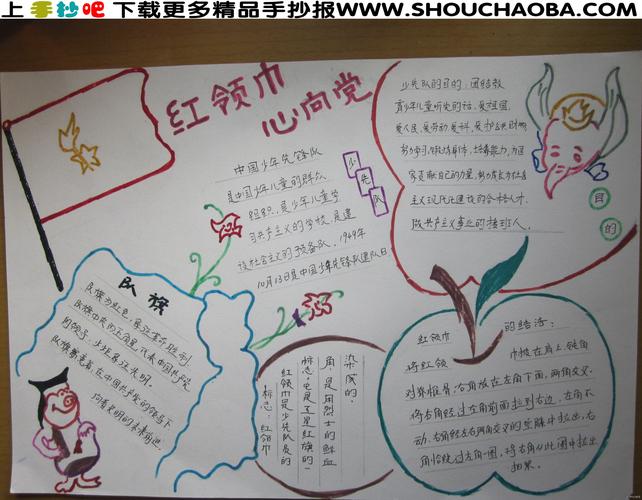 上 手抄吧 下载更多精品手抄报WWW.SHOUCHAOBA.COM
红领巾
心向党
少先队
中国少年先锋队
是中国少年儿童的群众
组织,是少年儿童学
习共产主义的学校,是建
设社会主义的预备队。1949年
10月13日是中国少年先锋队建队日
少先队的目的:团结教
育少年儿童听党的话,爱祖国,
爱人民,爱劳动,爱科
努力学习,锻炼身体,培养能力,为祖
主义现代化建设的合格人才,
做共产主义事业的接班人。
目
的
队旗
队旗为红色,象征革命胜利.
队旗中央的五角星,代表中国共产党
的领导,火炬象征光明.
队旗
在中国共产党的领导下
向着光明的未来前进.
标志:红领巾
红领巾是少先队员的
标志,它是五星红旗的一
角,是用烈士的鲜血
染成的。
红领巾 的结法:
将红领 巾披在肩上,钝角
对脊椎骨;右角放在左角下面,两角交叉.
将右角经过左角前面拉到右边,左角不
动.右角经左右两角交叉的空隙中拉出,右
角恰绕过左角一圈,将右角从此圈中拉出
抽紧。